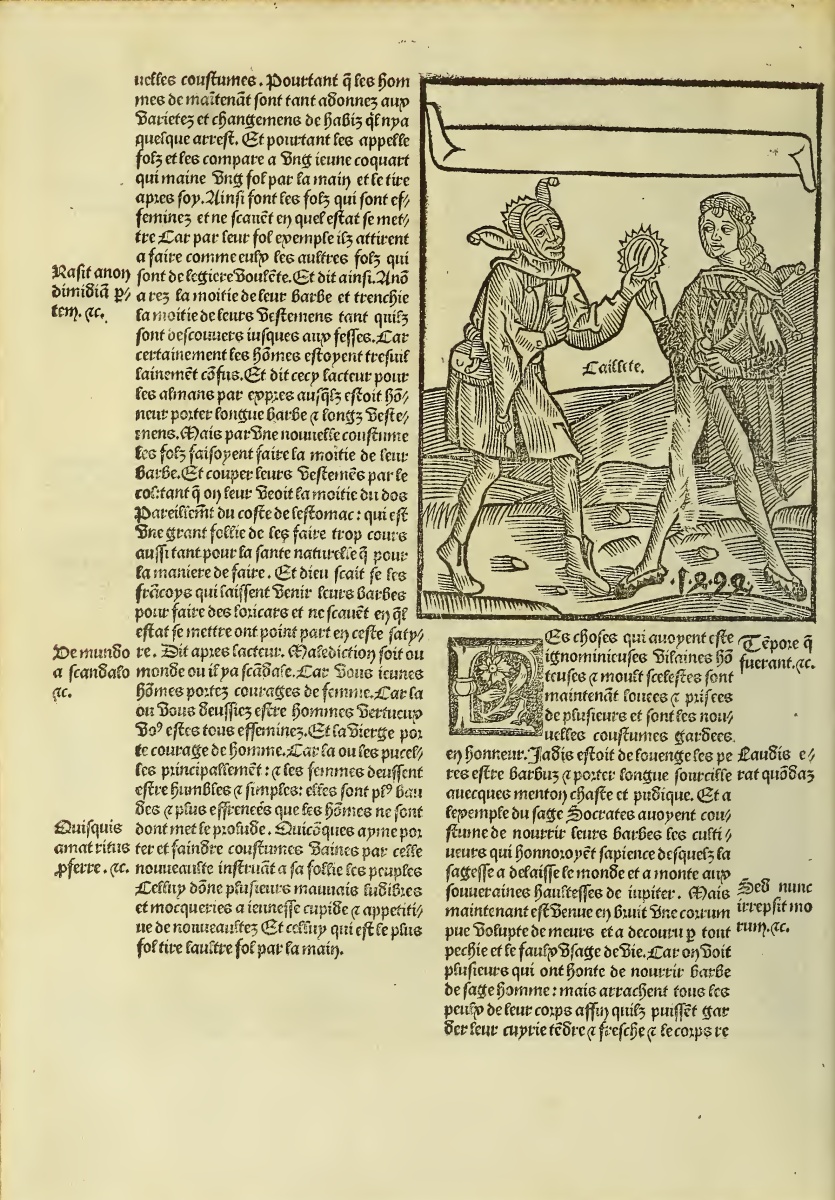 uelles coustumes. Pourtant q̃ les hom
mes de maītenāt sont tant adonnez aux
varietez et changemens de habiz ql̃ nya
quelque arrest. Et pourtant les appelle
folz et les compare a vng ieune coquart
qui maine vng fol par la main et le tire
apres soy. Ainsi font les folz qui sont ef/
feminez et ne scauēt en quel estat se met/
tre Car par leur fol exemple ilz attirent
a faire comme eulx les aultres folz qui
sont de legiere voulēte. Et dit ainsi. Anō
a rez la moitie de leur barbe et trenchie
la moitie de leurs vestemens tant quilz
sont descouuers iusques aux fesses. Car
certainement les hōmes estoyent tresuil
lainemēt cōfus. Et dit cecy lacteur pour
les almans par expres ausq̃lz estoit hō/
neur porter longue barbe ⁊ longz veste/
mens. Mais par vne nouuelle coustume
les folz faisoyent faire la moitie de leur
barbe. Et couper leurs vestemēs par le
costant q̃ on leur veoit la moitie du dos
Pareillemēt du coste de lestomac: qui est
vne grant follie de les faire trop cours
aussi tant pour la sante naturelle q̃ pour
la maniere de faire. Et dieu scait se les
frācoys qui laissent venir leurs barbes
pour faire des loricars et ne scauēt en q̃l
estat se mettre ont point part en ceste saty/
re. Dit apres lacteur. Malediction soit ou
monde ou il ya scādale. Car vous ieunes
hōmes portez courages de femme. Car la
ou vous deussiez estre hommes vertueux
voꝰ estes tous effeminez. Et la vierge por
te courage de homme. Car la ou les pucel/
les principallemēt: ⁊ les femmes deussent
estre humbles ⁊ simples: elles sont plꝰ bau
des ⁊ plus effrenees que les hōmes ne sont
dont met le profude. Quicōques ayme por
ter et faindre coustumes vaines par celle
nouueaulte instruāt a sa follie les peuples
Celluy dōne plusieurs mauuais ludibres
et mocqueries a ieunesse cupide ⁊ appetiti/
ue de nouueaultez Et celluy qui est le plus
fol tire laultre fol par la main.
Rasit anon
dimidiā p̃/
tem. ⁊c.
De mundo
a scandalo
⁊c.
Quisquis
amat ritus
ꝓferre. ⁊c.
Caillete.
.1.4.9.4.
Es choses qui auoyent este
ignominieuses vilaines hō
teuses ⁊ moult scelestes sont
maintenāt louees ⁊ prisees
de plusieurs et sont les nou/
uelles coustumes gardees.
en honneur. Jadis estoit de louenge les pe
res estre barbuz ⁊ porter longue sourcille
auecques menton chaste et pudique. Et a
lexemple du sage Socrates auoyent cou/
stume de nourrir leurs barbes les culti/
ueurs qui honnoroyēt sapience desquelz la
sagesse a delaisse le monde et a monte aux
souueraines haultesses de iupiter. Mais
maintenant est venue en bruit vne corrum
pue volupte de meurs et a decouru ꝑ tout
pechie et le faulx vsage de vie. Car on voit
plusieurs qui ont honte de nourrir barbe
de sage homme: mais arrachent tous les
peulx de leur corps affin quilz puissēt gar
der leur cuyrie tēdre ⁊ fresche ⁊ le corps re
Tēpore q̃
fuerant. ⁊c.
Laudis e/
rat quōdaz
Sed nunc
irrepsit mo
rum. ⁊c.